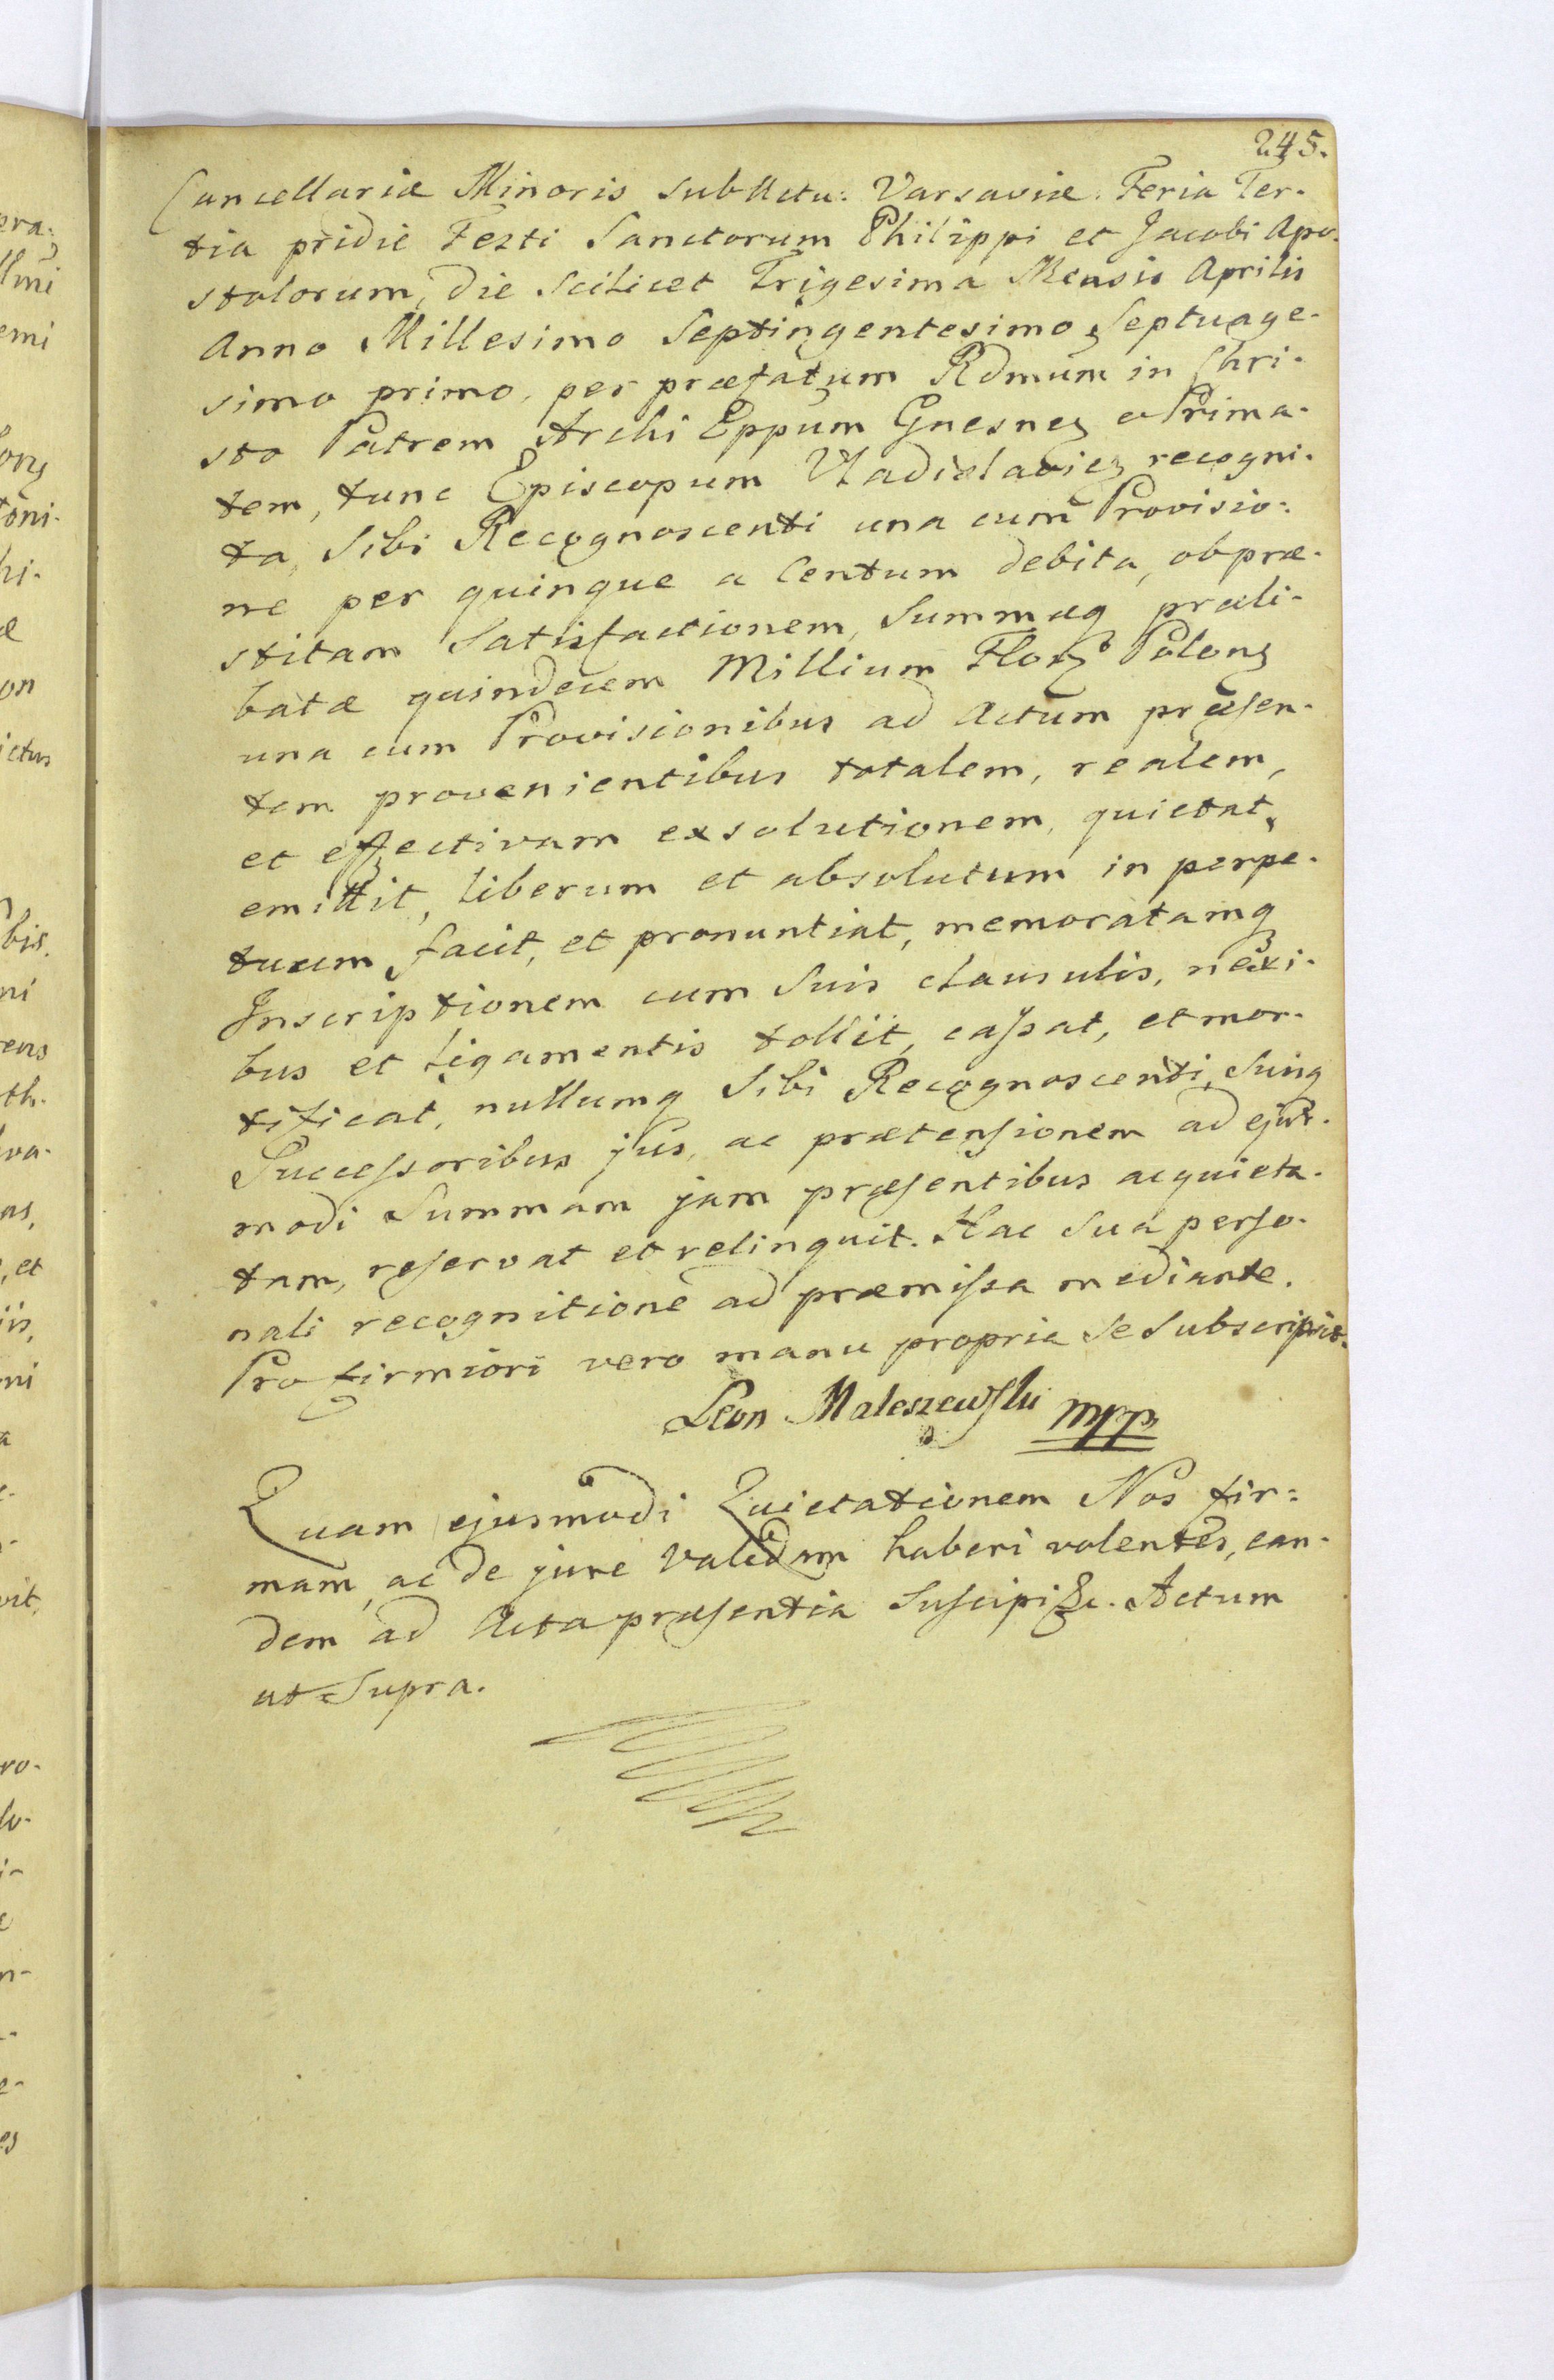 245.
Cancellariæ Minoris sub Actu: Varsaviæ. Feria Ter-
tia pridie Festi Sanctorum Philippi et Jacobi Apo-
stolorum, die scilicet Trigesima Mensis Aprilis
Anno Millesimo Septingentesimo Septuage-
simo primo, per præfatum Rdmum in Chri-
sto Patrem Archi Eppum Gnesnen et Prima-
tem, tunc Episcopum Vladislavien recogni-
ta, Sibi Recognoscenti una cum Provisio:
ne per quinque a Centum debita, ob præ-
stitam Satisfactionem, Summæq præli-
batæ quindecem Millium Flor. Polon
una cum Provisionibus ad Actum præsen-
tem provenientibus totalem, realem,
et effectivam exsolutionem, quietat,
emittit, liberum et absolutum in perpe-
tuum facit, et pronuntiat, memoratamq
Inscriptionem cum Suis clausulis, nexi-
bus et ligamentis tollit, cassat, et mor-
tificat, nullumq Sibi Recognoscenti, Suisq
Successoribus jus, ac prætensionem ad ejus-
modi Summam jam præsentibus acquieta-
tam, reservat et relinquit. Hac Sua perso-
nali recognitione ad præmissa mediante.
Pro firmiori vero manu propria Se Subscripsit.
Leon Maleszewski mpp
Quam ejusmodi Quietationem Nos fir=
mam, ac de jure validam haberi volentes, ean-
dem ad Acta præsentia Suscipi &c. Actum
ut Supra.